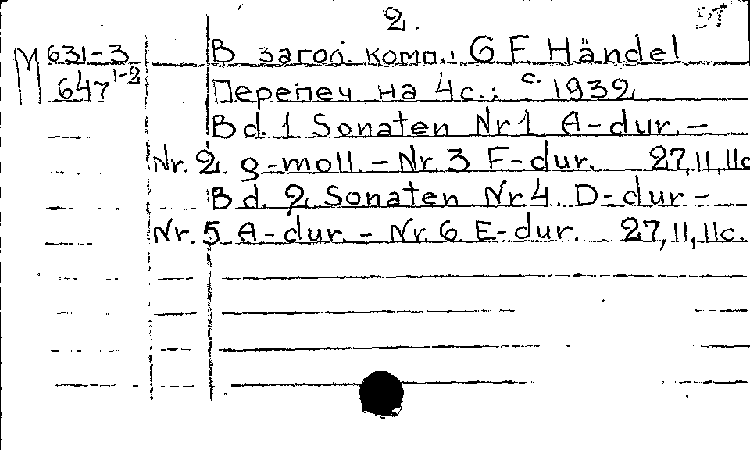 2.
M 631-3
647 1-2
В загол. комп.: G F Händel
Перепеч на 4с.: с. 1932
Bd. 1 Sonaten Nr 1 A-dur. -
Nr. 2 g-moll. - Nr. 3 F-dur. 27, 11, 11c
Bd. 2 Sonaten Nr 4. D-dur -
Nr. 5 A-dur. - Nr. 6 E-dur. 27, 11, 11c.